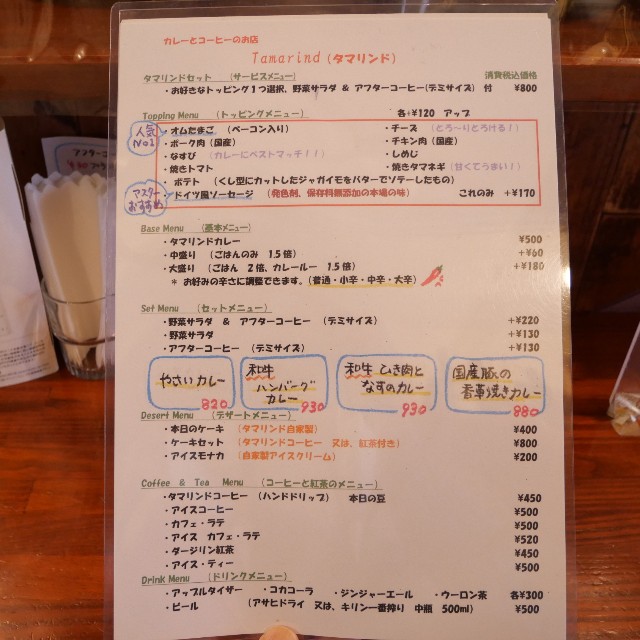 カレーとコーヒーのお店
Tamarind (タマリンド)
タマリンドセット （サービスメニュー） 消費税込価格
・お好きなトッピング１つ選択、野菜サラダ & アフターコーヒー(デミサイズ) 付 ¥800
Topping Menu （トッピングメニュー） 各+¥120 アップ
人気No1 ・オムたまご （ベーコン入り） ・チーズ （とろ～りとろける！）
・ポーク肉（国産） ・チキン肉（国産）
・なすび （カレーにベストマッチ！！） ・しめじ
・焼きトマト ・焼きタマネギ（甘くてうまい！）
ポテト （くし型にカットしたジャガイモをバターでソテーしたもの）
マスターおすすめ ・ドイツ風ソーセージ （発色剤、保存料無添加の本場の味） これのみ +¥170
Base Menu （基本メニュー）
・タマリンドカレー ¥500
・中盛り （ごはんのみ 1.5倍） +¥60
・大盛り （ごはん 2倍、カレールー 1.5倍） +¥180
* お好みの辛さに調整できます。（普通・小辛・中辛・大辛）
Set Menu （セットメニュー）
・野菜サラダ & アフターコーヒー （デミサイズ） +¥220
・野菜サラダ +¥130
・アフターコーヒー （デミサイズ） +¥130
やさいカレー 820
和牛ハンバーグカレー 930
和牛ひき肉となすのカレー 930
国産豚の香草焼きカレー 880
Desert Menu （デザートメニュー）
・本日のケーキ （タマリンド自家製） ¥400
・ケーキセット （タマリンドコーヒー 又は、紅茶付き） ¥800
・アイスモナカ （自家製アイスクリーム） ¥200
Coffee & Tea Menu （コーヒーと紅茶のメニュー）
・タマリンドコーヒー （ハンドドリップ） 本日の豆 ¥450
・アイスコーヒー ¥500
・カフェ・ラテ ¥500
・アイス カフェ・ラテ ¥520
・ダージリン紅茶 ¥450
・アイス・ティー ¥500
Drink Menu （ドリンクメニュー）
・アップルタイザー ・コカコーラ ・ジンジャーエール ・ウーロン茶 各¥300
・ビール （アサヒドライ 又は、キリン一番搾り 中瓶 500ml） ¥500